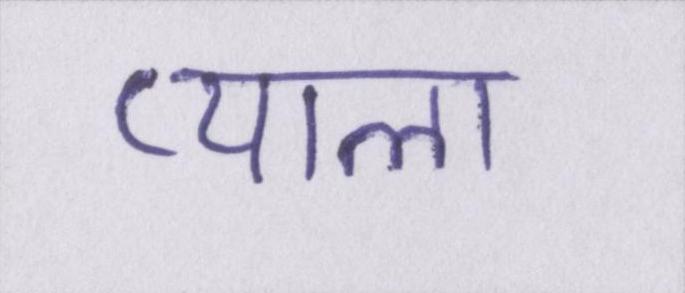 प्याला